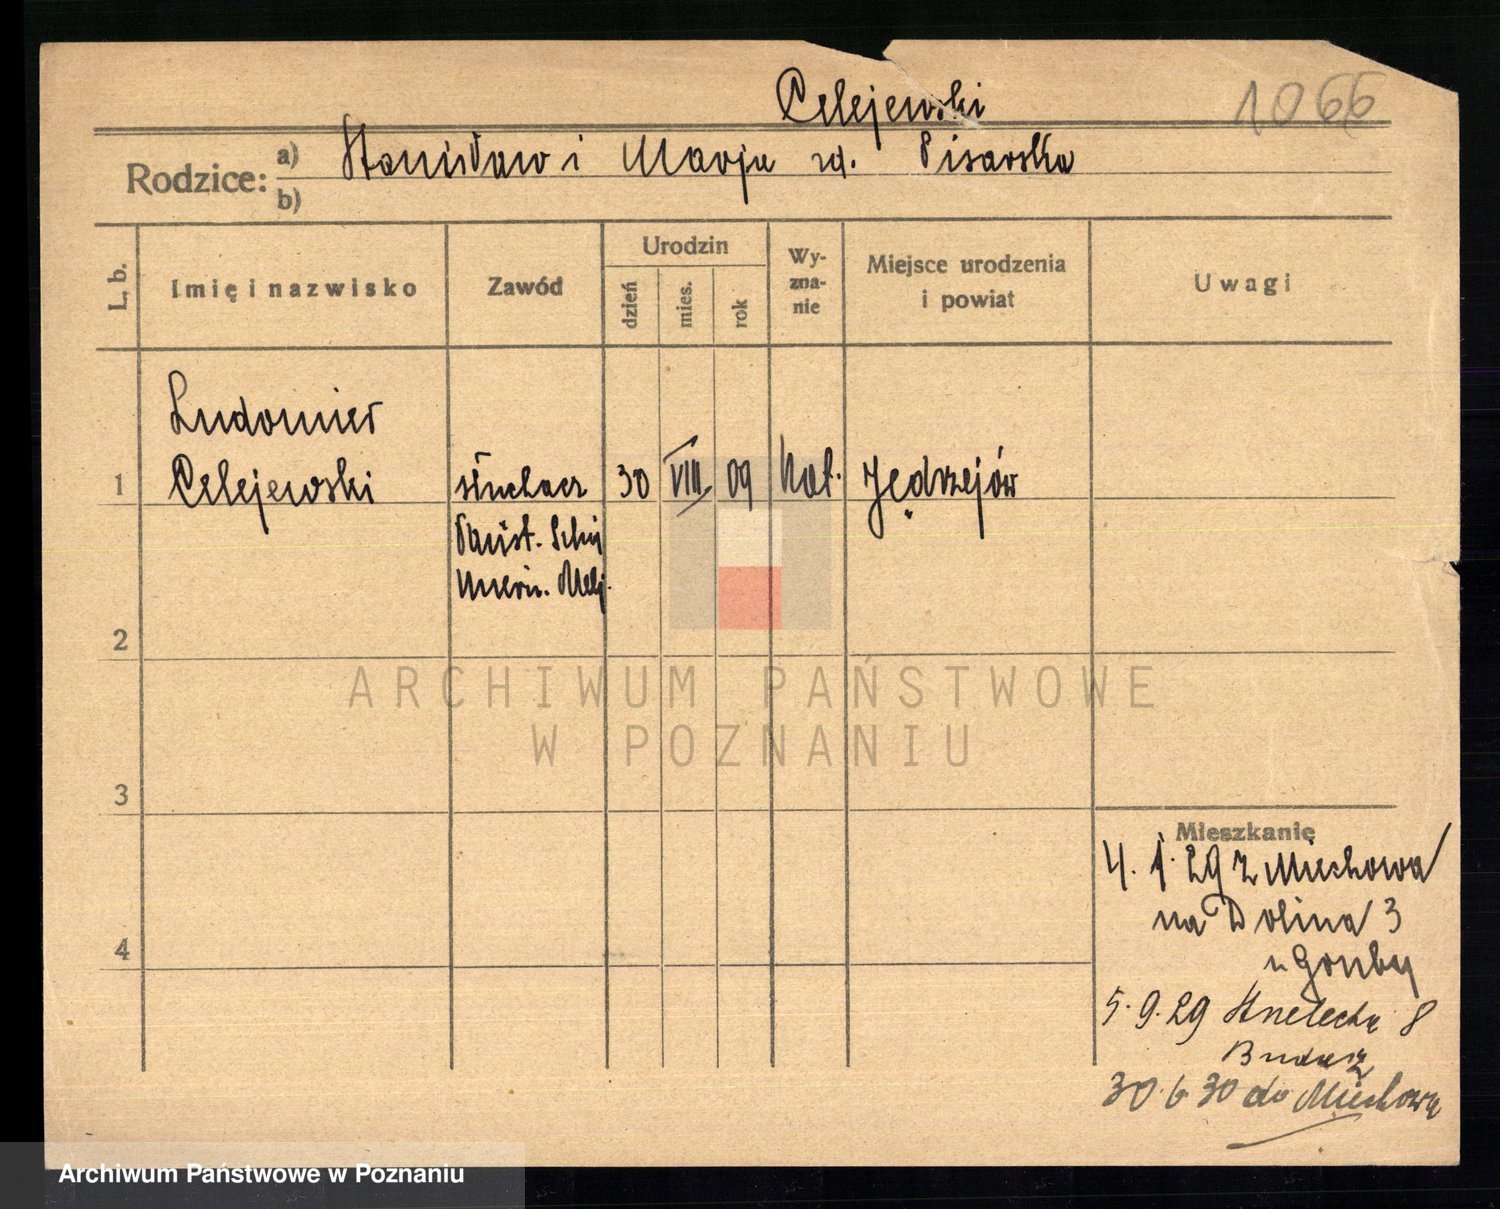 Celejewski
1066
Rodzice: a) Stanisław i Marja zd. Pisarska
b)
L. b.
Imię i nazwisko
Zawód
Urodzin
dzień
mies.
rok
Wy-
zna-
nie
Miejsce urodzenia
i powiat
Uwagi
Ludomier
1 Celejewski słuchacz 30 VIII 09 Kat. Jędrzejów
Państ.
2
ARCHIWUM PAŃSTWOWE
W POZNANIU
3
Mieszkanie
4. 1. 29 z Miechowa
na Dolina 3
4
u Gruby
5. 9. 29 Strzelecka 8
30. 6. 30 do Miechowa
Archiwum Państwowe w Poznaniu